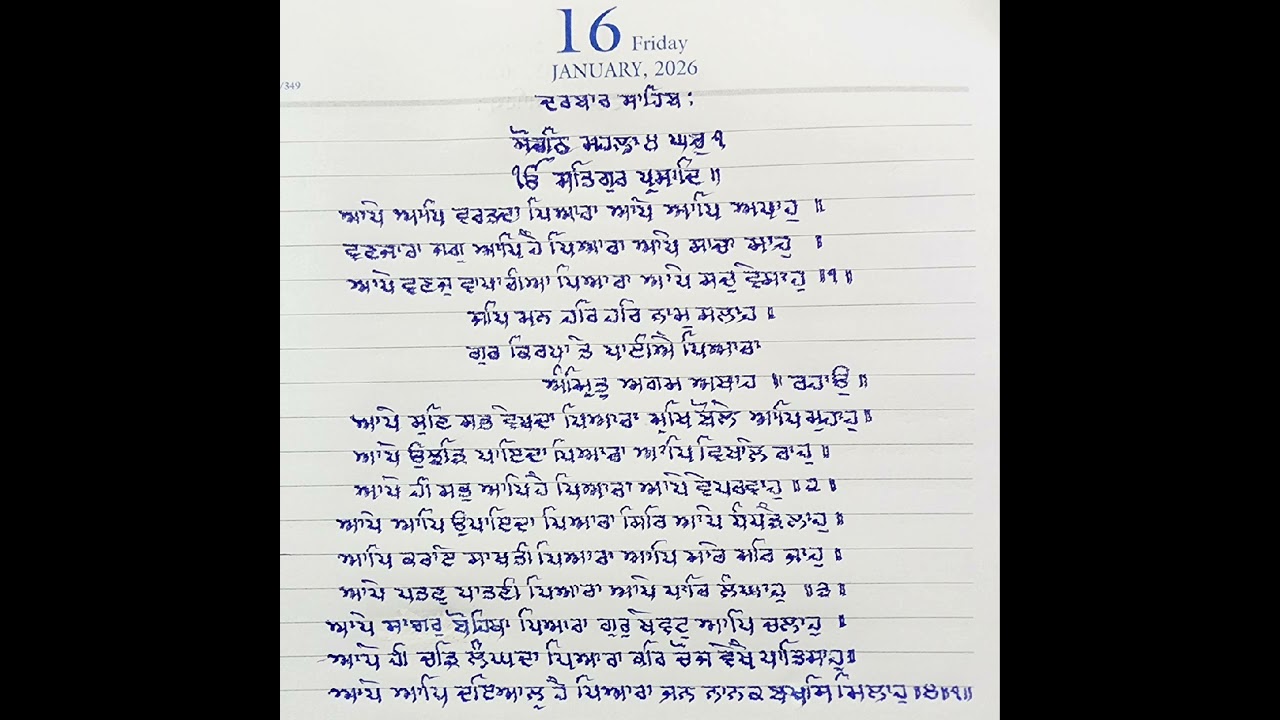 16 Friday
JANUARY, 2026
/349
ਦਰਬਾਰ ਸਾਹਿਬ :
ਸੋਰਠਿ ਮਹਲਾ ੪ ਘਰੁ ੧
ੴ ਸਤਿਗੁਰ ਪ੍ਰਸਾਦਿ ॥
ਆਪੇ ਆਪਿ ਵਰਤਦਾ ਪਿਆਰਾ ਆਪੇ ਆਪਿ ਅਪਾਹੁ ॥
ਵਣਜਾਰਾ ਜਗੁ ਆਪਿ ਹੈ ਪਿਆਰਾ ਆਪੇ ਸਾਚਾ ਸਾਹੁ ॥
ਆਪੇ ਵਣਜੁ ਵਾਪਾਰੀਆ ਪਿਆਰਾ ਆਪੇ ਸਚੁ ਵੇਸਾਹੁ ॥੧॥
ਜਪਿ ਮਨ ਹਰਿ ਹਰਿ ਨਾਮੁ ਸਲਾਹ ॥
ਗੁਰ ਕਿਰਪਾ ਤੇ ਪਾਈਐ ਪਿਆਰਾ
ਅੰਮ੍ਰਿਤੁ ਅਗਮ ਅਥਾਹ ॥ ਰਹਾਉ ॥
ਆਪੇ ਸੁਣਿ ਸਭ ਵੇਖਦਾ ਪਿਆਰਾ ਮੁਖਿ ਬੋਲੇ ਆਪਿ ਮੁਹਾਹੁ ॥
ਆਪੇ ਉਝੜਿ ਪਾਇਦਾ ਪਿਆਰਾ ਆਪਿ ਵਿਖਾਲੇ ਰਾਹੁ ॥
ਆਪੇ ਹੀ ਸਭੁ ਆਪਿ ਹੈ ਪਿਆਰਾ ਆਪੇ ਵੇਪਰਵਾਹੁ ॥੨॥
ਆਪੇ ਆਪਿ ਉਪਾਇਦਾ ਪਿਆਰਾ ਸਿਰਿ ਆਪੇ ਧੰਧੜੈ ਲਾਹੁ ॥
ਆਪਿ ਕਰਾਏ ਸਾਖਤੀ ਪਿਆਰਾ ਆਪਿ ਮਾਰੇ ਮਰਿ ਜਾਹੁ ॥
ਆਪੇ ਪਤਣੁ ਪਾਤਣੀ ਪਿਆਰਾ ਆਪੇ ਪਾਰਿ ਲੰਘਾਹੁ ॥੩॥
ਆਪੇ ਸਾਗਰੁ ਬੋਹਿਥਾ ਪਿਆਰਾ ਗੁਰੁ ਖੇਵਟੁ ਆਪਿ ਚਲਾਹੁ ॥
ਆਪੇ ਹੀ ਚੜਿ ਲੰਘਦਾ ਪਿਆਰਾ ਕਰਿ ਚੋਜ ਵੇਖੈ ਪਾਤਿਸਾਹੁ ॥
ਆਪੇ ਆਪਿ ਦਇਆਲੁ ਹੈ ਪਿਆਰਾ ਜਨ ਨਾਨਕ ਬਖਸਿ ਮਿਲਾਹੁ ॥੪॥੧॥